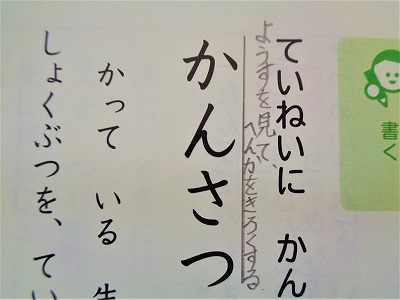 書く
ていねいに かん
ようすを見て、
へんかをきろくする
かんさつ
かって いる 生
しょくぶつを、てい